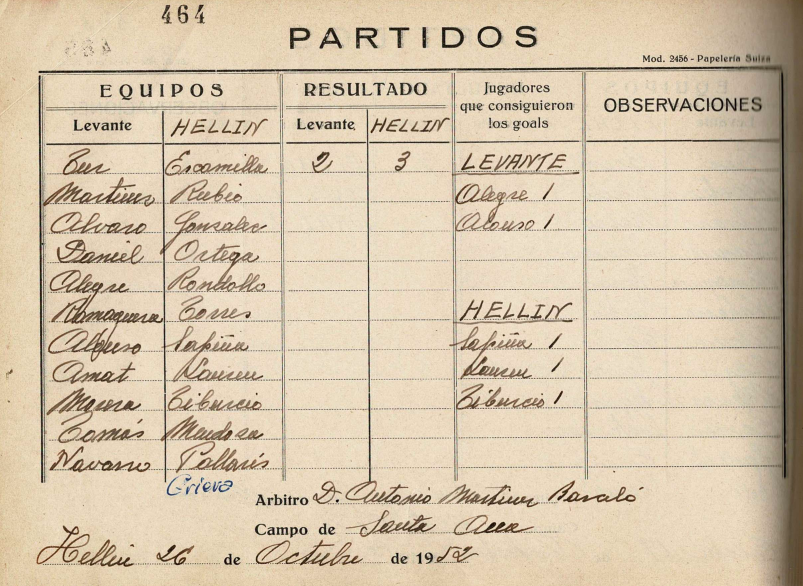 464
PARTIDOS
Mod. 2456 - Papelería Suiza
EQUIPOS RESULTADO Jugadores que consiguieron los goals OBSERVACIONES
Levante HELLIN Levante HELLIN
Tur Escamilla 2 3 LEVANTE
Martinez Rubio Alegre 1
Alvaro Gonzalez Alonso 1
Daniel Ortega
Alegre Rondollo
Ramaguera Torres HELLIN
Alonso Sapiña Sapiña 1
Amat
Tiburcio Tiburcio 1
Tomás Mendoza
Navarro Pallarés
Arbitro D. Antonio Martinez Barceló
Campo de Santa Ana
Hellin 26 de Octubre de 1952